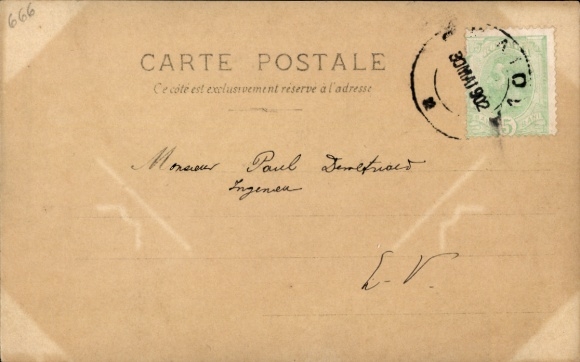 666
CARTE POSTALE
Ce côté est exclusivement réservé à l'adresse
30 MAI 902
5
Monsieur Paul
L-V.